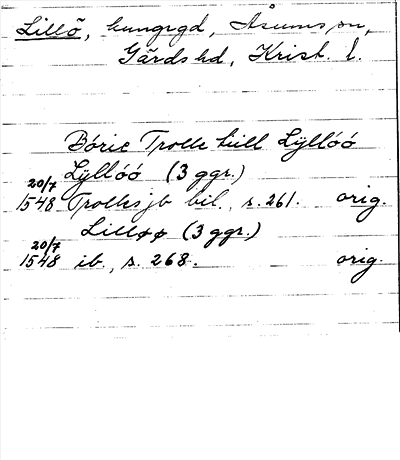 Lillö, kungsgd, Åsums sn,
Gärds hd, Krist. l.
Bórie Trolle tiill Lÿllóó
Lÿllóó (3 ggr.)
20/7
1548 Trolles jb bil., s. 261. orig.
Lilløø (3 ggr.)
20/7
1548 ib., s. 268. orig.